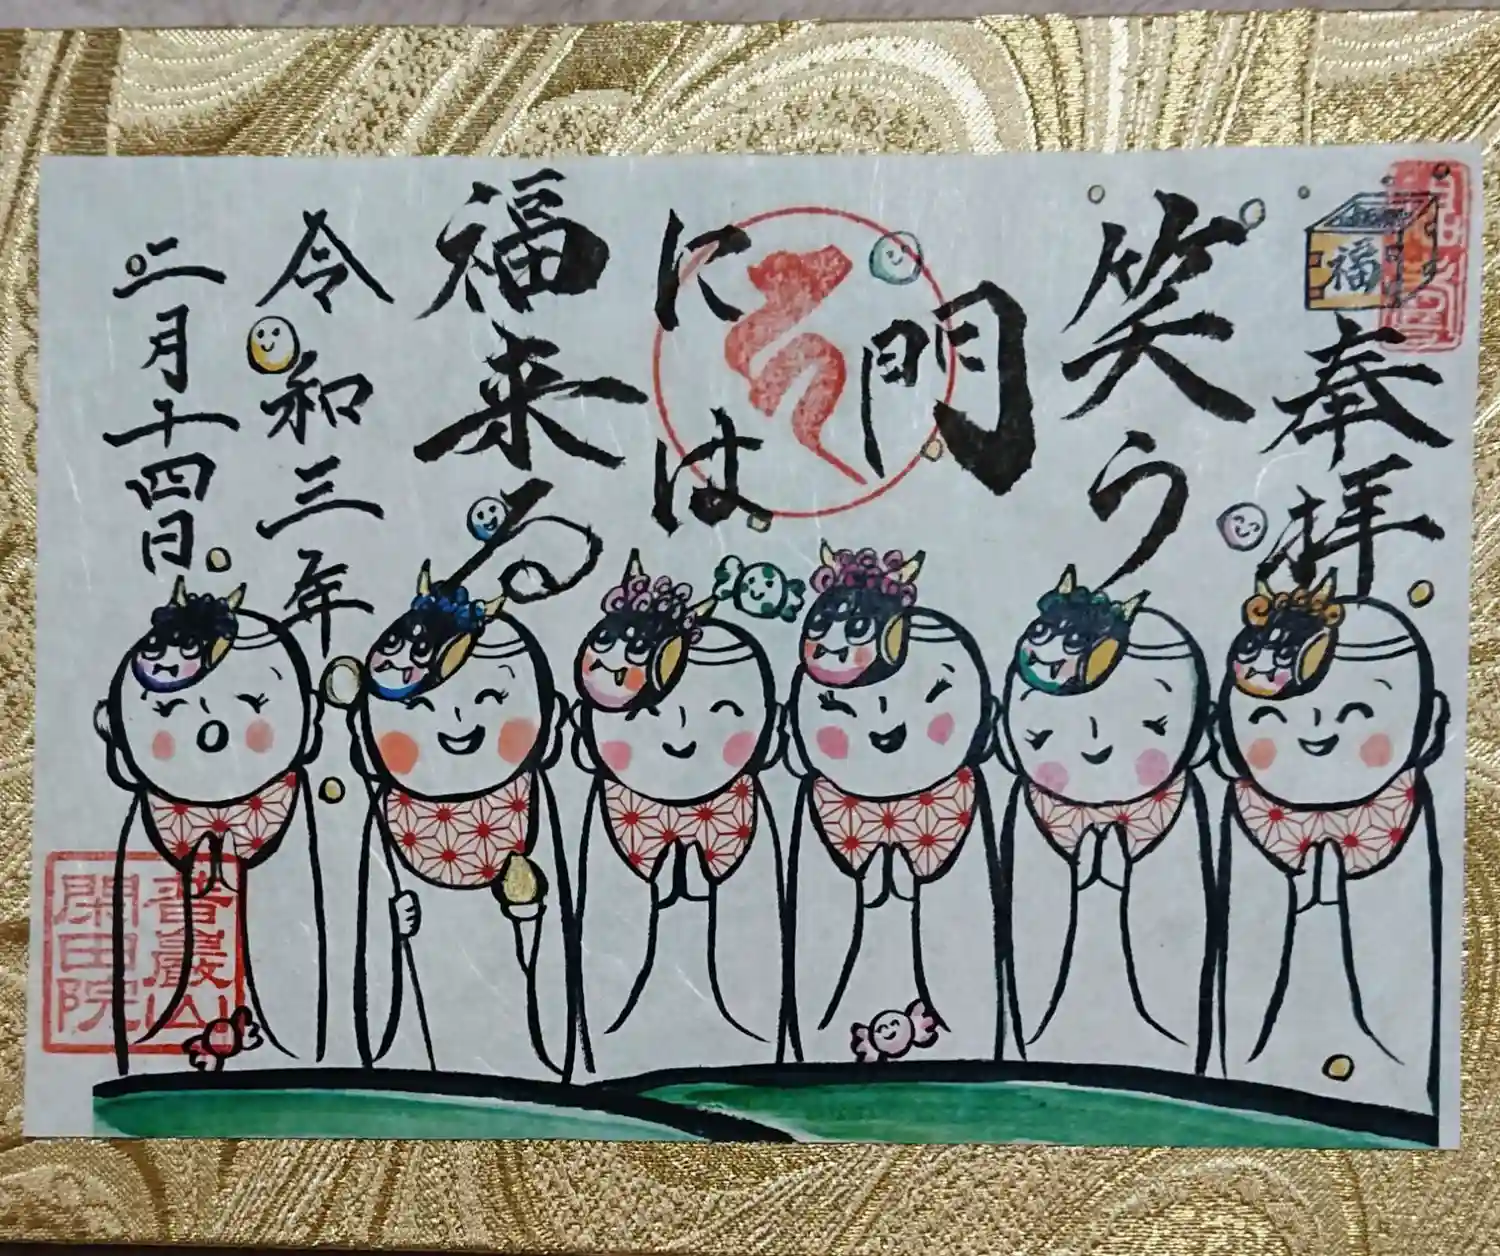 福
奉拝
笑う
門
には
福来る
令和三年
二月十四日
普巖山
閑田院